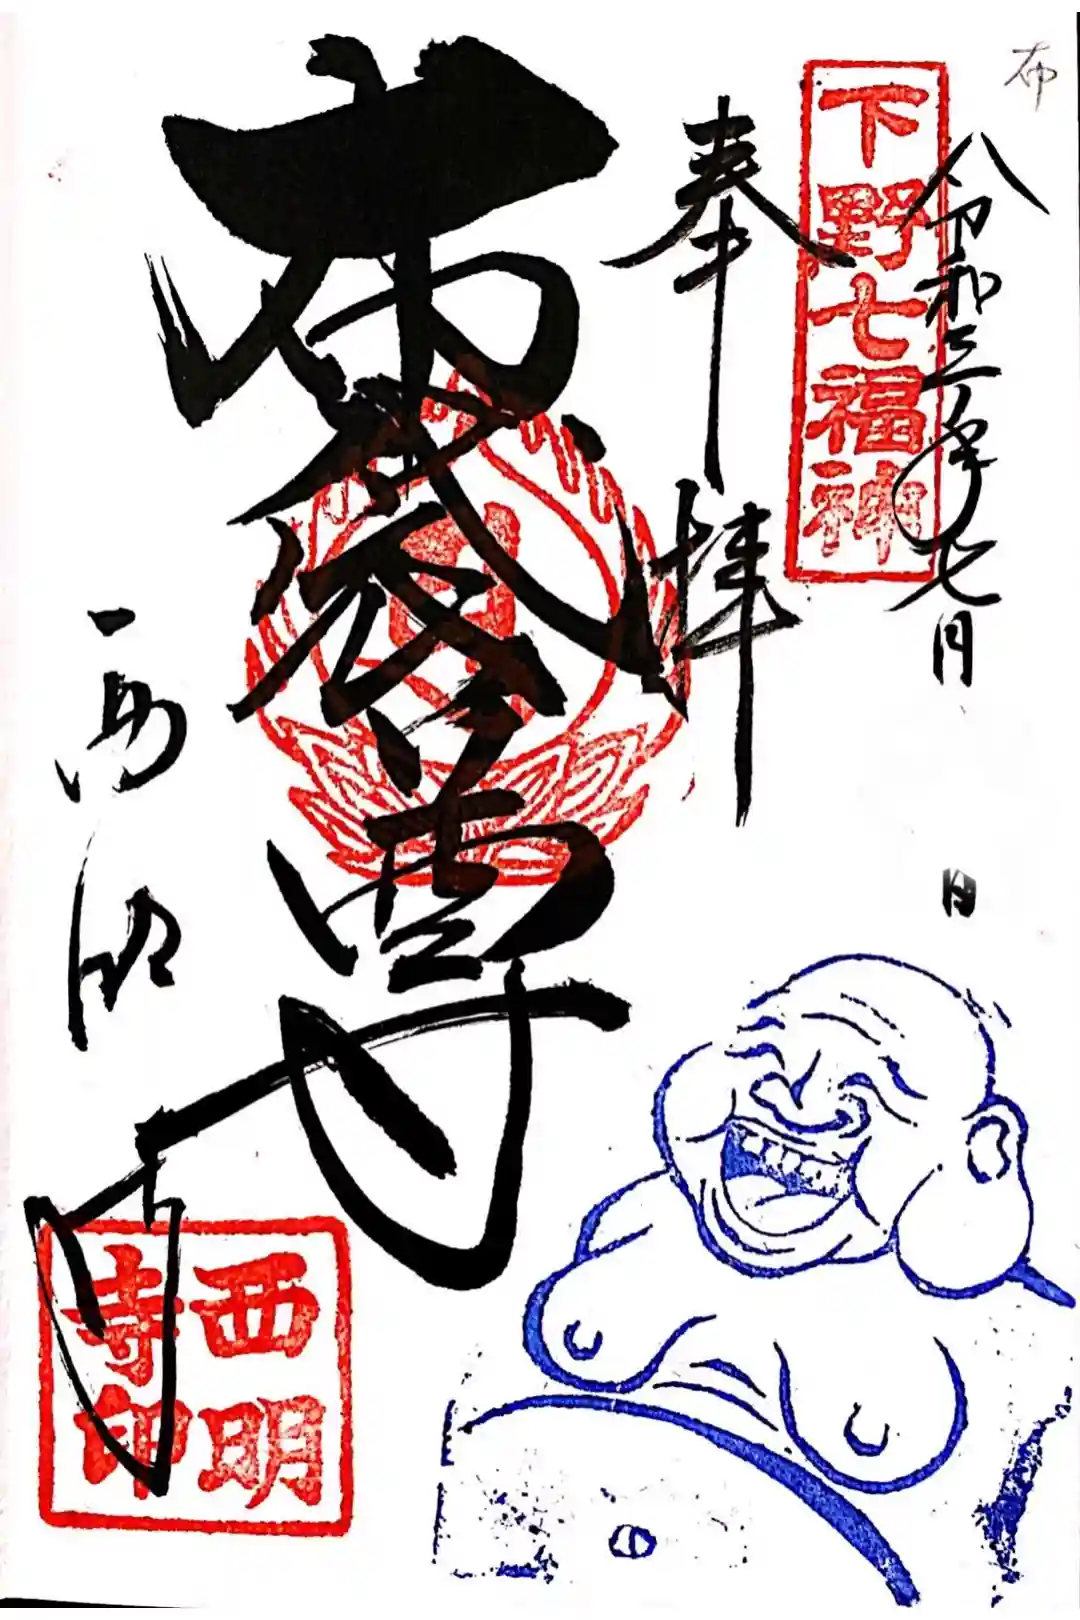 布
下野七福神
令和三年七月 日
奉拝
布袋尊
西明寺
西明
寺印